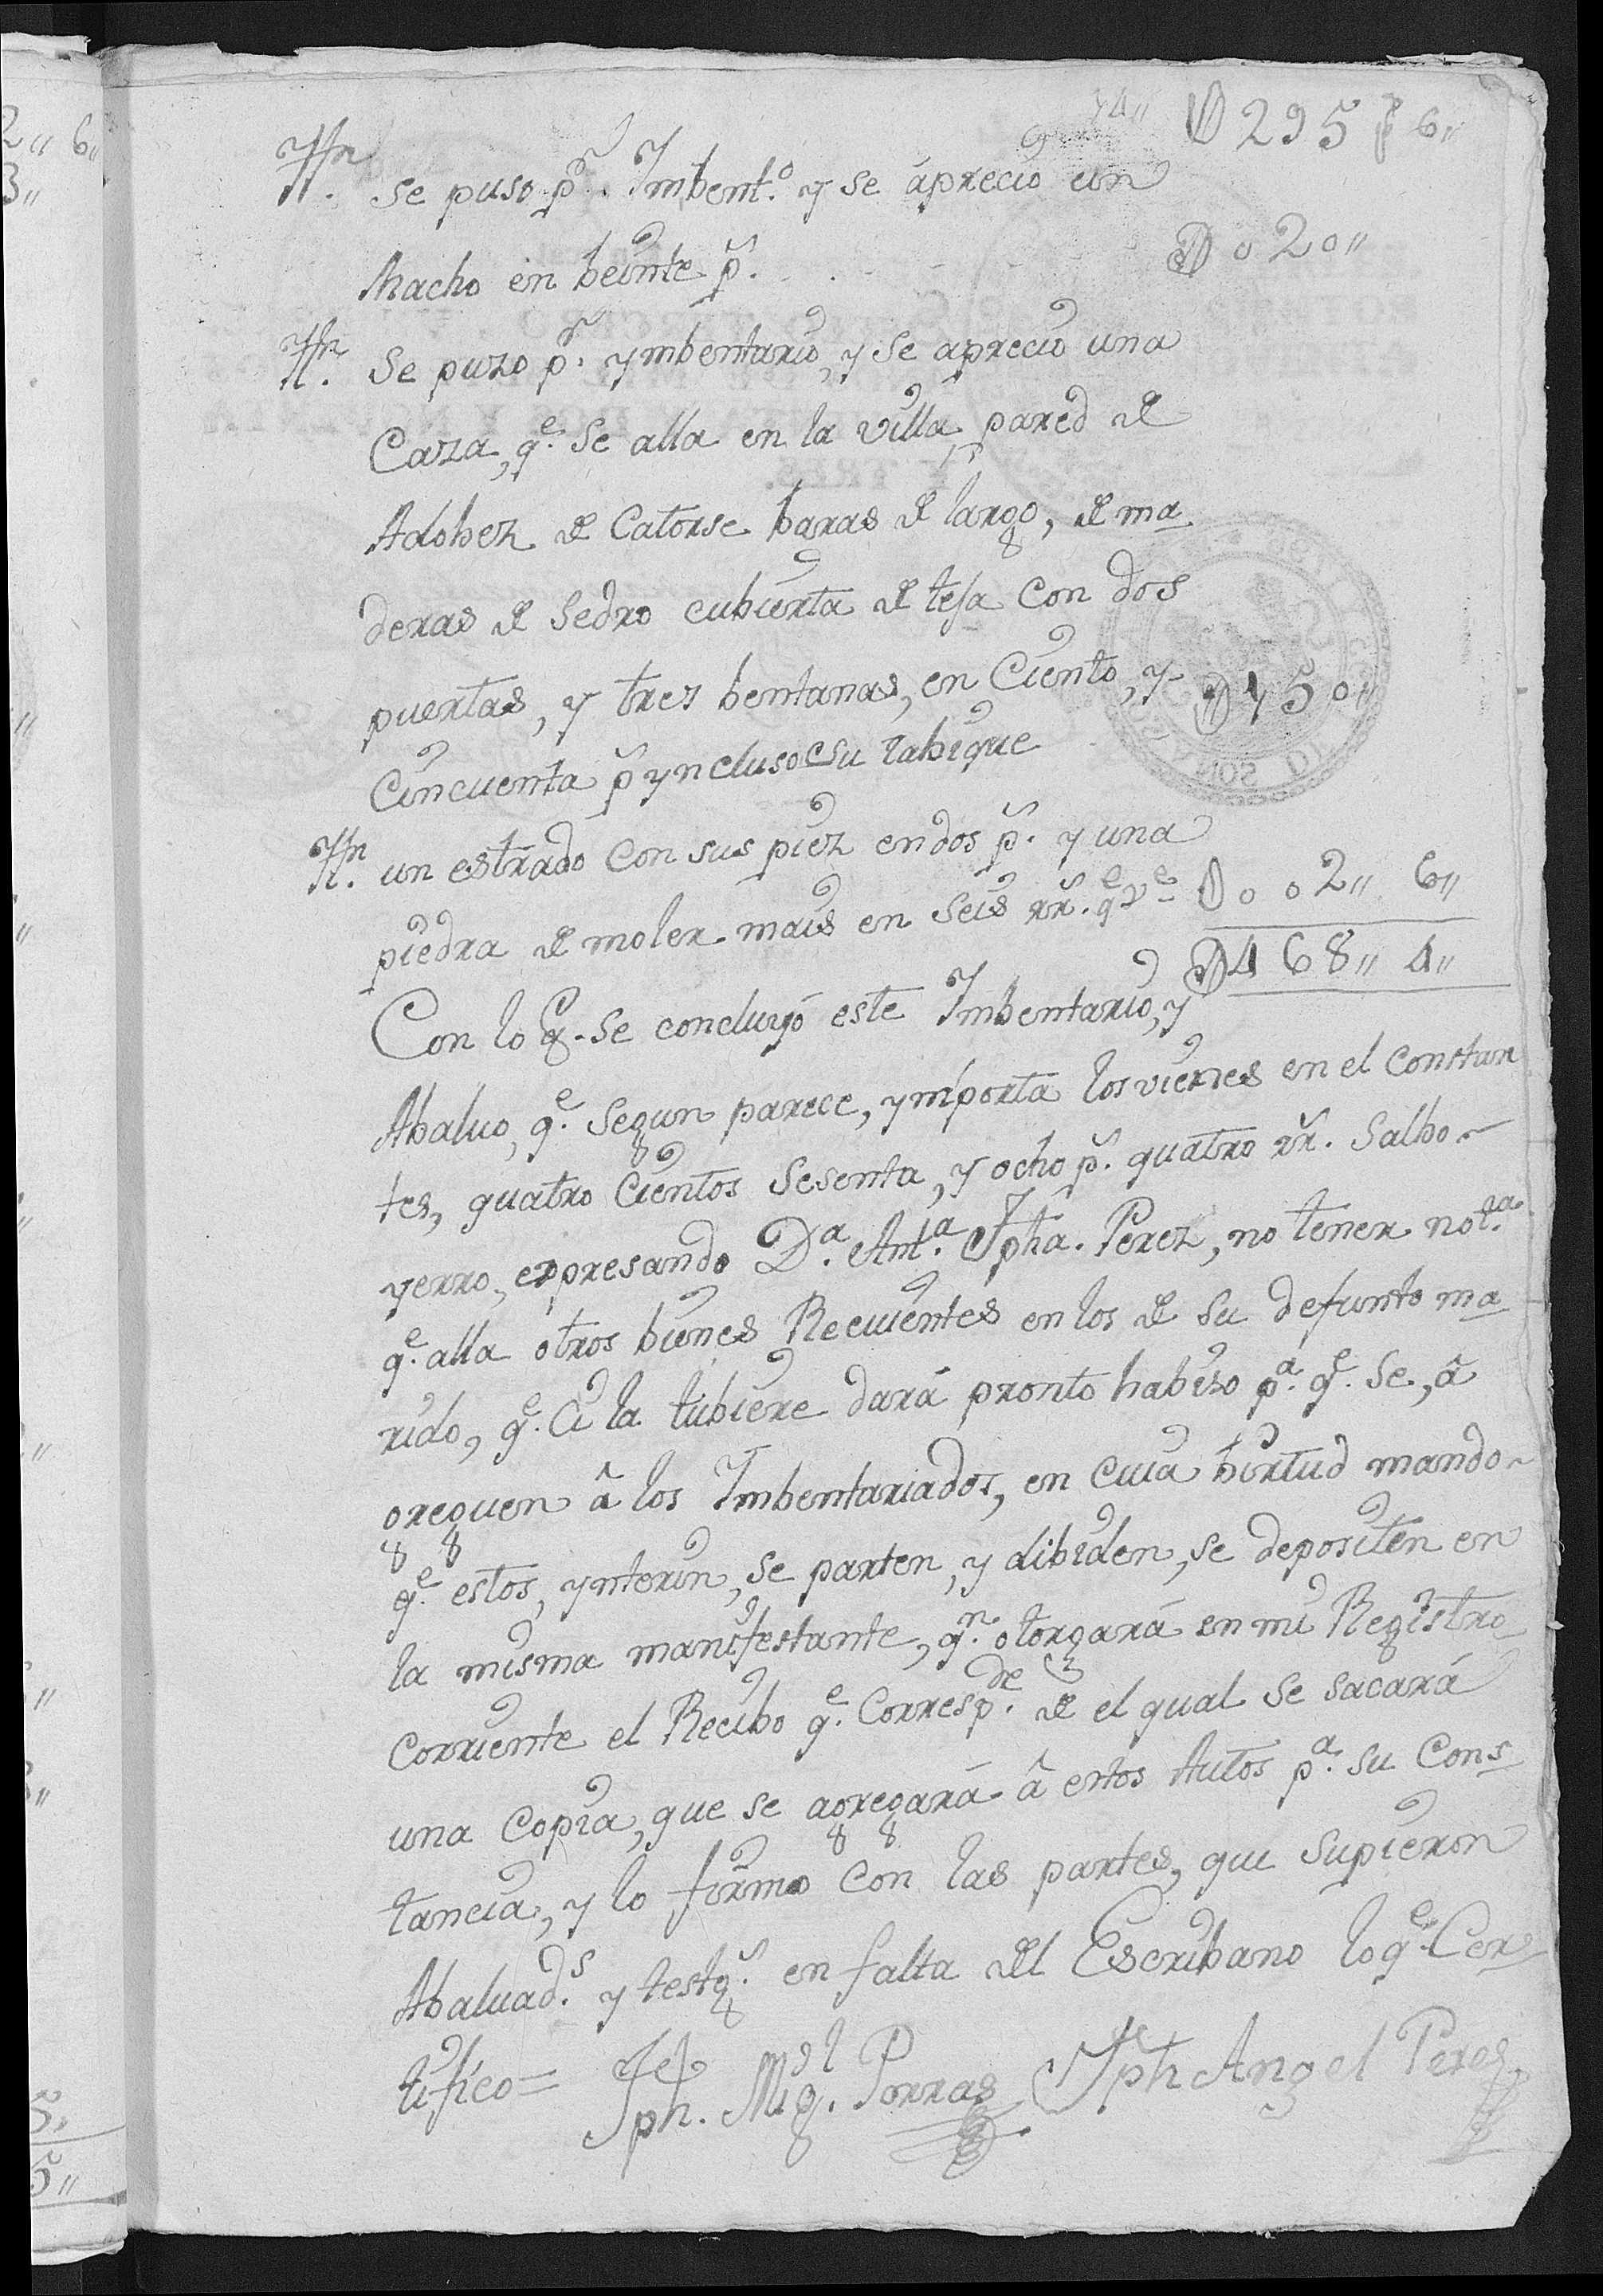 U295p 6"
Ytn. Se puso pr. Imbent.o y se áprecio un
Macho en beinte p.s U020"
Ytn. Se puzo pr. ymbentario, y se aprecio una
Caza, q.e se alla en la villa, pared de
Adobez de Catorse baras de largo, de ma
deras de Sedro cubierta de teja con dos
puertas, y tres bentanas, en Ciento, y U150"
Cincuenta p.s yncluso su tabique
Ytn. un estrado con sus piez en dos p.s y una
piedra de moler mais en seis rr.s U002" 6"
U468" 4"
Con lo q. se concluyó este Imbentario, y
Abaluo, q.e segun parece, ymporta los vienes en el constan
tes, quatro cientos sesenta, y ocho p.s quatro rr. Salbo
yerro, expresando D.a Ant.a Jpha. Perez, no tener not.a
q.e alla otros bienes Recuientes en los de su defunto ma
rido, q.e ci la tubiere dará pronto habizo p.a q.e se, â
greguen â los Imbentariados, en cuia birtud mando
q.e estos, ynterin, se parten, y dibiden, se depositen en
la misma manifestante, q.n otorgará en mi Registro
Corriente el Recibo q.e Corresp.de de el qual se sacará
una copia, que se agregará â estos Autos p.a su Cons
tancia, y lo firmo con las partes, que supieron
Abaluad.s y testg.s en falta del Escribano lo q.e Cer
tifico=
Jph. Mig.l Porras Jph Angel Peres